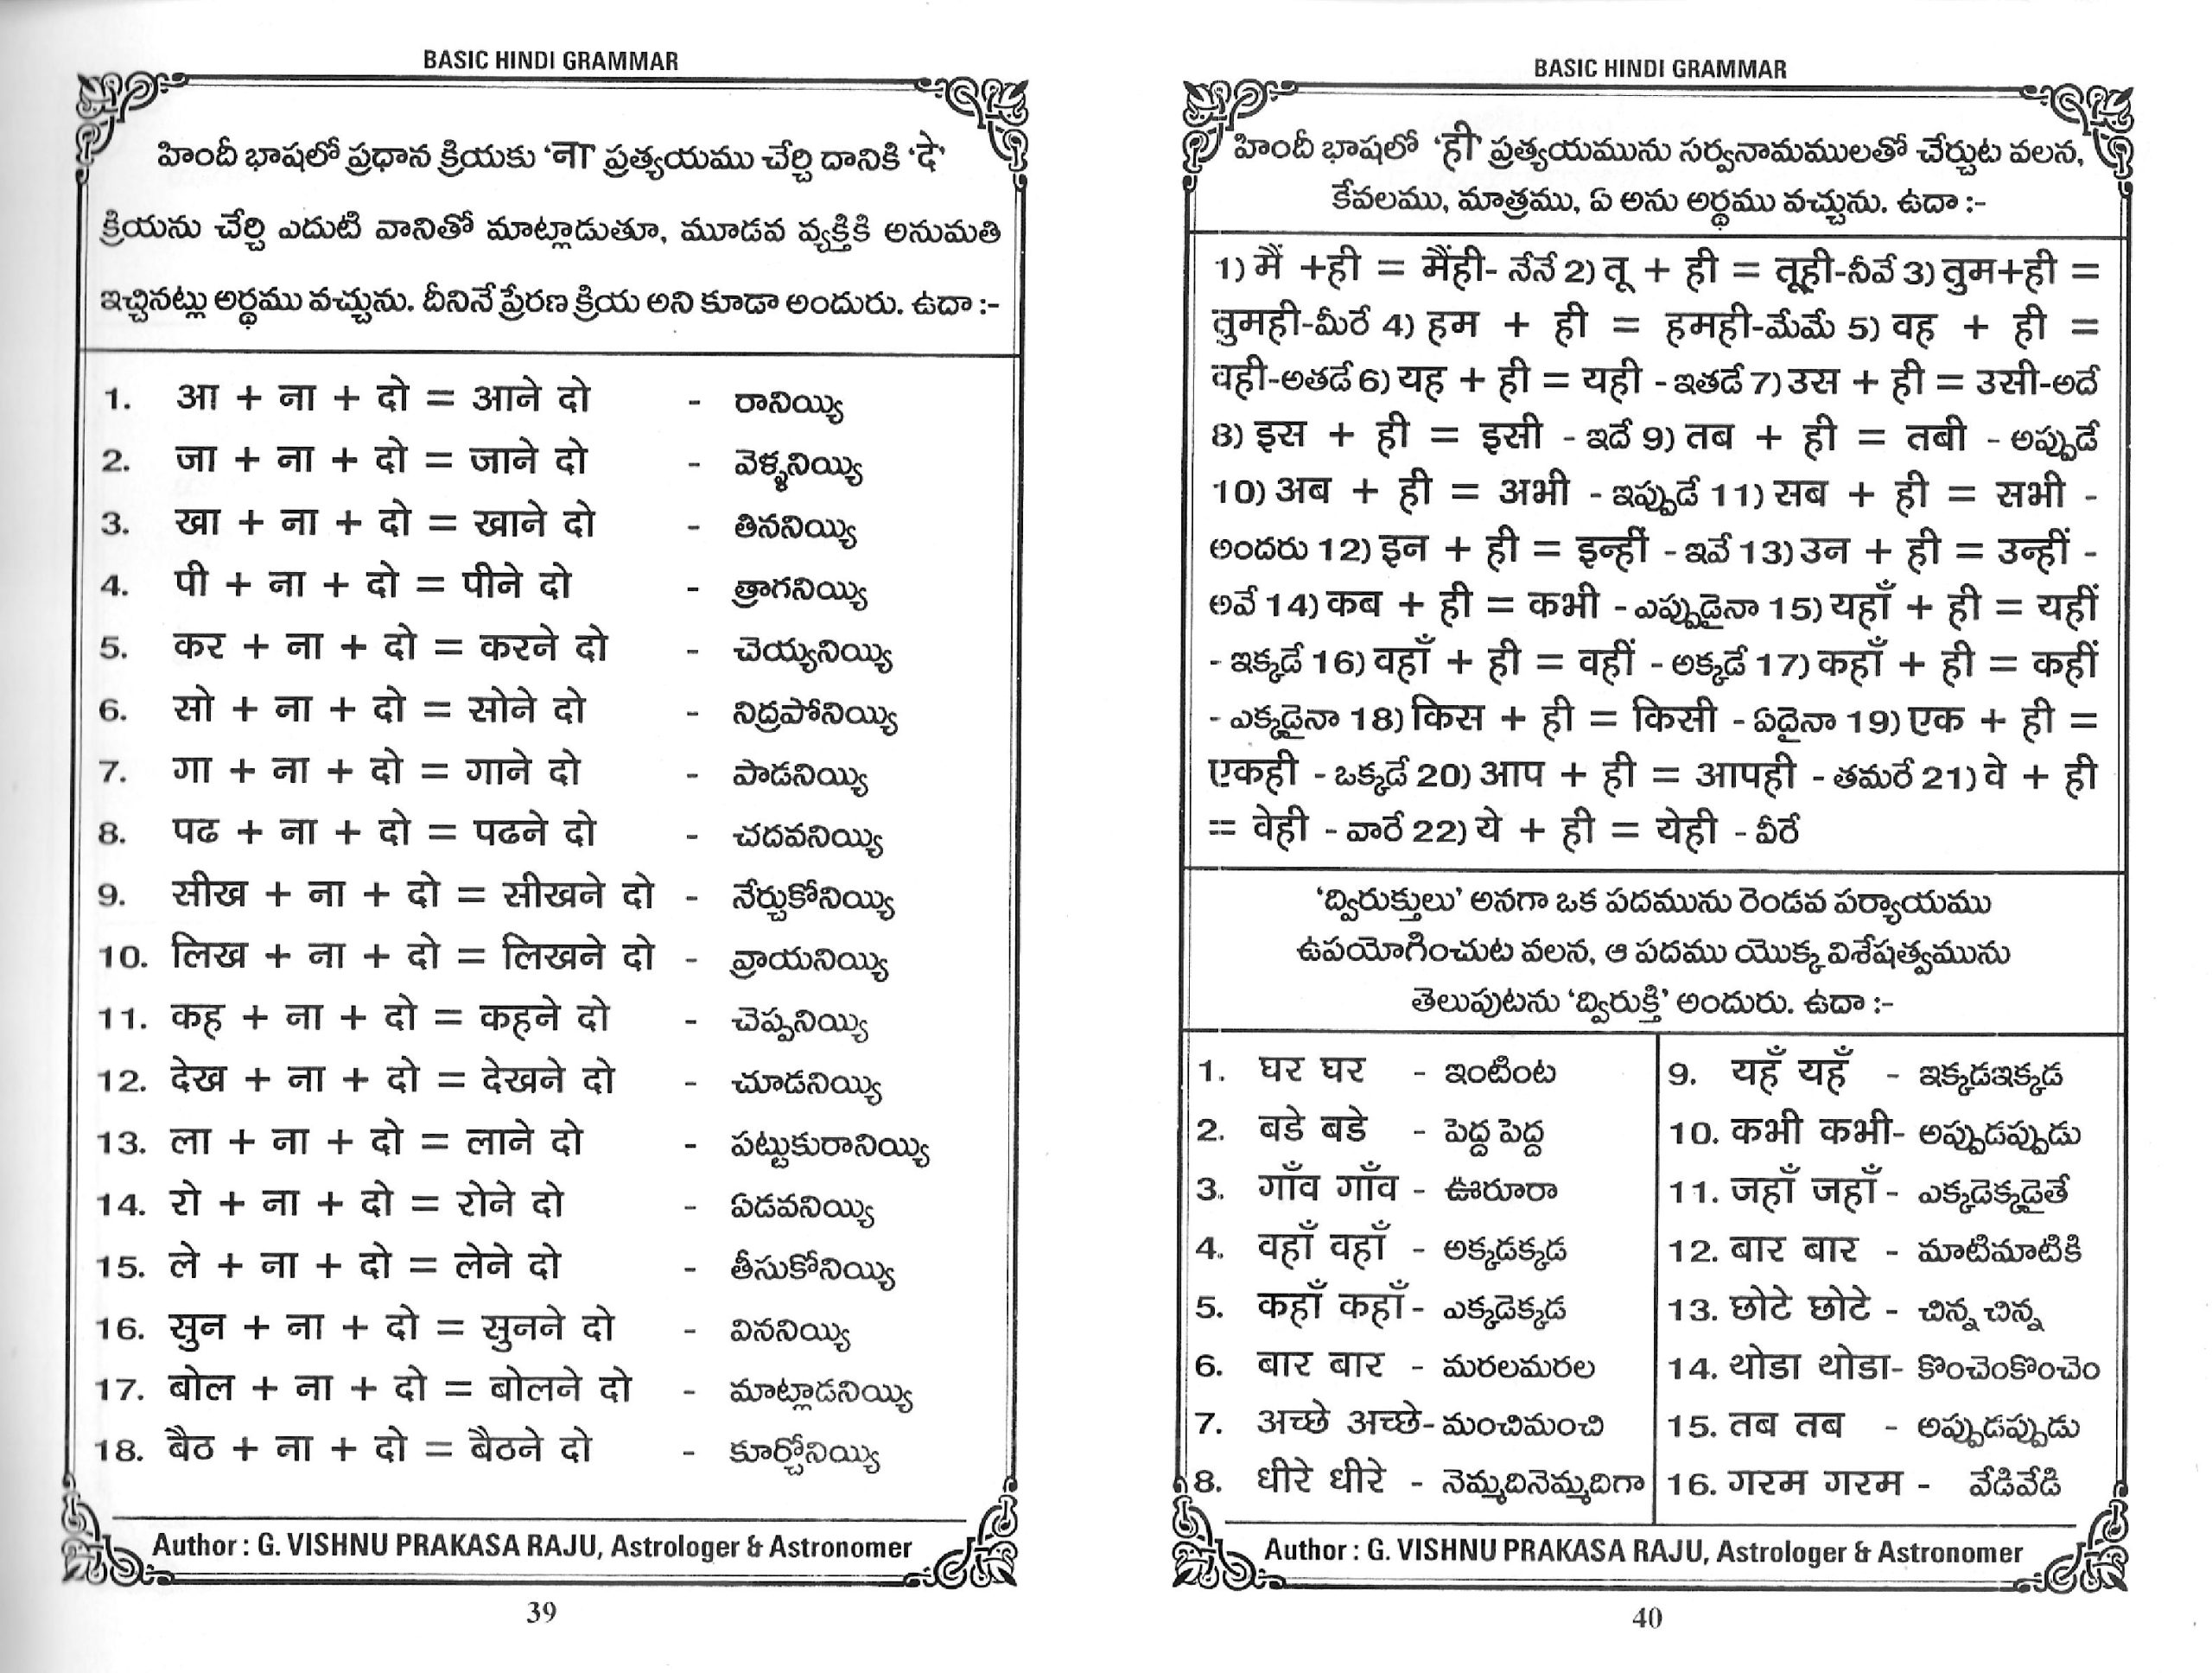 BASIC HINDI GRAMMAR
హిందీ భాషలో ప్రధాన క్రియకు 'ना' ప్రత్యయము చేర్చి దానికి 'दे'
క్రియను చేర్చి ఎదుటి వానితో మాట్లాడుతూ, మూడవ వ్యక్తికి అనుమతి
ఇచ్చినట్లు అర్థము వచ్చును. దీనినే ప్రేరణ క్రియ అని కూడా అందురు. ఉదా :-
1. आ + ना + दो = आने दो - రానియ్యి
2. जा + ना + दो = जाने दो - వెళ్ళనియ్యి
3. खा + ना + दो = खाने दो - తిననియ్యి
4. पी + ना + दो = पीने दो - త్రాగనియ్యి
5. कर + ना + दो = करने दो - చెయ్యనియ్యి
6. सो + ना + दो = सोने दो - నిద్రపోనియ్యి
7. गा + ना + दो = गाने दो - పాడనియ్యి
8. पढ + ना + दो = पढने दो - చదవనియ్యి
9. सीख + ना + दो = सीखने दो - నేర్చుకోనియ్యి
10. लिख + ना + दो = लिखने दो - వ్రాయనియ్యి
11. कह + ना + दो = कहने दो - చెప్పనియ్యి
12. देख + ना + दो = देखने दो - చూడనియ్యి
13. ला + ना + दो = लाने दो - పట్టుకురానియ్యి
14. रो + ना + दो = रोने दो - ఏడవనియ్యి
15. ले + ना + दो = लेने दो - తీసుకోనియ్యి
16. सुन + ना + दो = सुनने दो - విననియ్యి
17. बोल + ना + दो = बोलने दो - మాట్లాడనియ్యి
18. बैठ + ना + दो = बैठने दो - కూర్చోనియ్యి
Author : G. VISHNU PRAKASA RAJU, Astrologer & Astronomer
39
BASIC HINDI GRAMMAR
హిందీ భాషలో 'ही' ప్రత్యయమును సర్వనామములతో చేర్చుట వలన,
కేవలము, మాత్రము, ఏ అను అర్థము వచ్చును. ఉదా :-
1) मैं +ही = मैंही- నేనే 2) तू + ही = तूही-నీవే 3) तुम+ही =
तुमही-మీరే 4) हम + ही = हमही-మేమే 5) वह + ही =
वही-అతడే 6) यह + ही = यही - ఇతడే 7) उस + ही = उसी-అదే
8) इस + ही = इसी - ఇదే 9) तब + ही = तबी - అప్పుడే
10) अब + ही = अभी - ఇప్పుడే 11) सब + ही = सभी -
అందరు 12) इन + ही = इन्हीं - ఇవే 13) उन + ही = उन्हीं -
అవే 14) कब + ही = कभी - ఎప్పుడైనా 15) यहाँ + ही = यहीं
- ఇక్కడే 16) वहाँ + ही = वहीं - అక్కడే 17) कहाँ + ही = कहीं
- ఎక్కడైనా 18) किस + ही = किसी - ఏదైనా 19) एक + ही =
एकही - ఒక్కడే 20) आप + ही = आपही - తమరే 21) वे + ही
= वेही - వారే 22) ये + ही = येही - వీరే
'ద్విరుక్తులు' అనగా ఒక పదమును రెండవ పర్యాయము
ఉపయోగించుట వలన, ఆ పదము యొక్క విశేషత్వమును
తెలుపుటను 'ద్విరుక్తి' అందురు. ఉదా :-
1. घर घर - ఇంటింట
2. बडे बडे - పెద్ద పెద్ద
3. गाँव गाँव - ఊరూరా
4. वहाँ वहाँ - అక్కడక్కడ
5. कहाँ कहाँ- ఎక్కడెక్కడ
6. बार बार - మరలమరల
7. अच्छे अच्छे- మంచిమంచి
8. धीरे धीरे - నెమ్మదినెమ్మదిగా
9. यहँ यहँ - ఇక్కడఇక్కడ
10. कभी कभी- అప్పుడప్పుడు
11. जहाँ जहाँ - ఎక్కడెక్కడైతే
12. बार बार - మాటిమాటికి
13. छोटे छोटे - చిన్న చిన్న
14. थोडा थोडा- కొంచెంకొంచెం
15. तब तब - అప్పుడప్పుడు
16. गरम गरम - వేడివేడి
Author : G. VISHNU PRAKASA RAJU, Astrologer & Astronomer
40